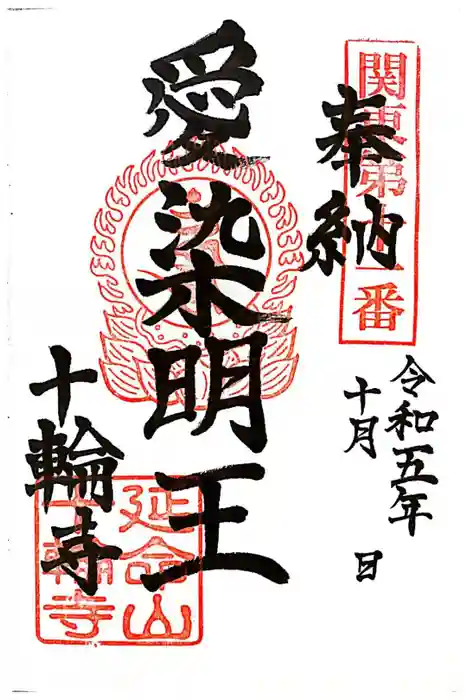 関東第十一番
奉納
令和五年
十月 日
愛染明王
十輪寺
延命山
十輪寺